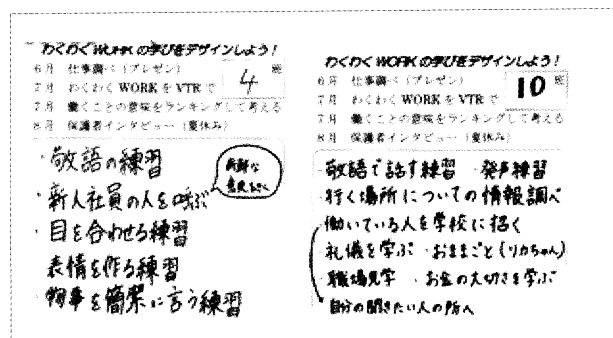 わくわく WORK の学びをデザインしよう!
6月 仕事調べ(プレゼン)
7月 わくわく WORK を VTR で
7月 働くことの意味をランキングして考える
8月 保護者インタビュー(夏休み)
4 班
・敬語の練習
・新人社員の人を呼ぶ
新鮮な
意見をきく
・目を合わせる練習
表情を作る練習
・物事を簡潔に言う練習
わくわく WORK の学びをデザインしよう!
6月 仕事調べ(プレゼン)
7月 わくわく WORK を VTR で
7月 働くことの意味をランキングして考える
8月 保護者インタビュー(夏休み)
10 班
・敬語で話す練習 ・発声練習
・行く場所についての情報調べ
・働いている人を学校に招く
・礼儀を学ぶ ・おままごと(リカちゃん)
・職場見学 ・お金の大切さを学ぶ
・自分の聞きたい人の所へ